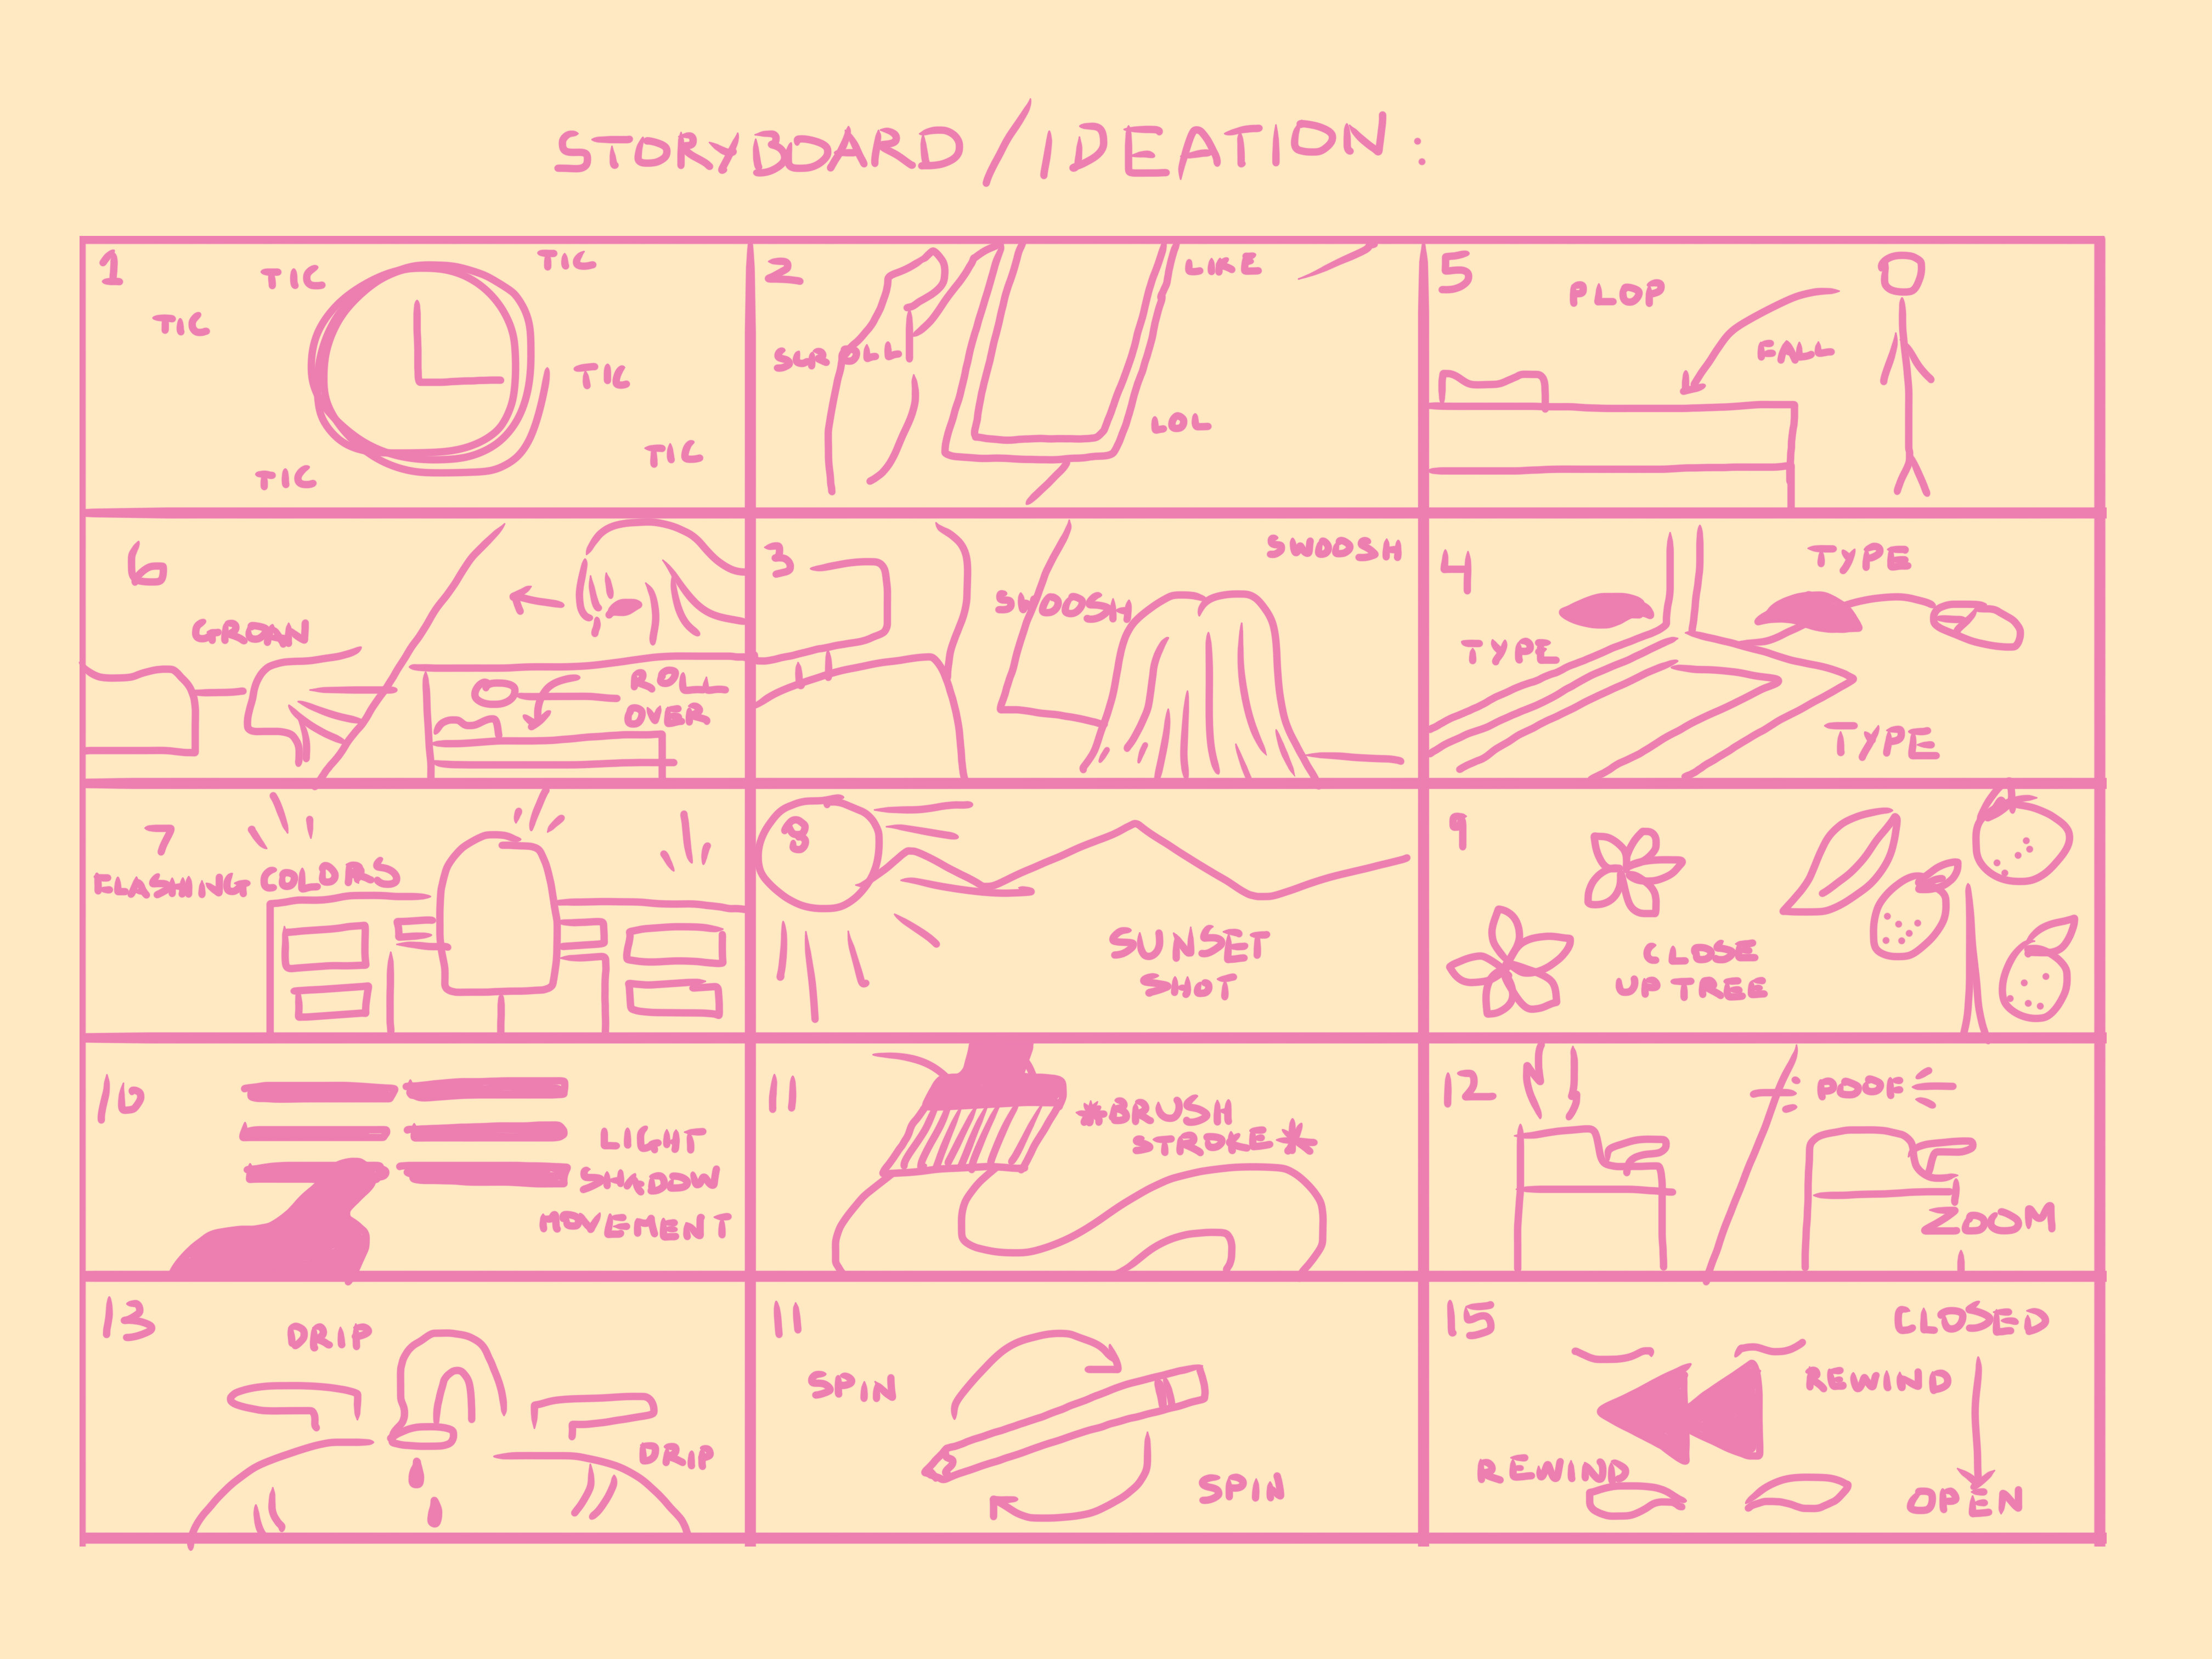 STORYBOARD / IDEATION:
1
TIC
TIC
TIC
TIC
TIC
TIC
2
LIKE
SCROLL
LOL
5
PLOP
FALL
6
GROAN
ROLL
OVER
3
SWOOSH
SWOOSH
4
TYPE
TYPE
TYPE
7
FLASHING COLORS
8
SUNSET
SHOT
9
CLOSE
UP TREE
10
LIGHT
SHADOW
MOVEMENT
11
*BRUSH
STROKE*
12
POOF
ZOOM
13
DRIP
DRIP
11
SPIN
SPIN
15
CLOSED
REWIND
REWIND
OPEN